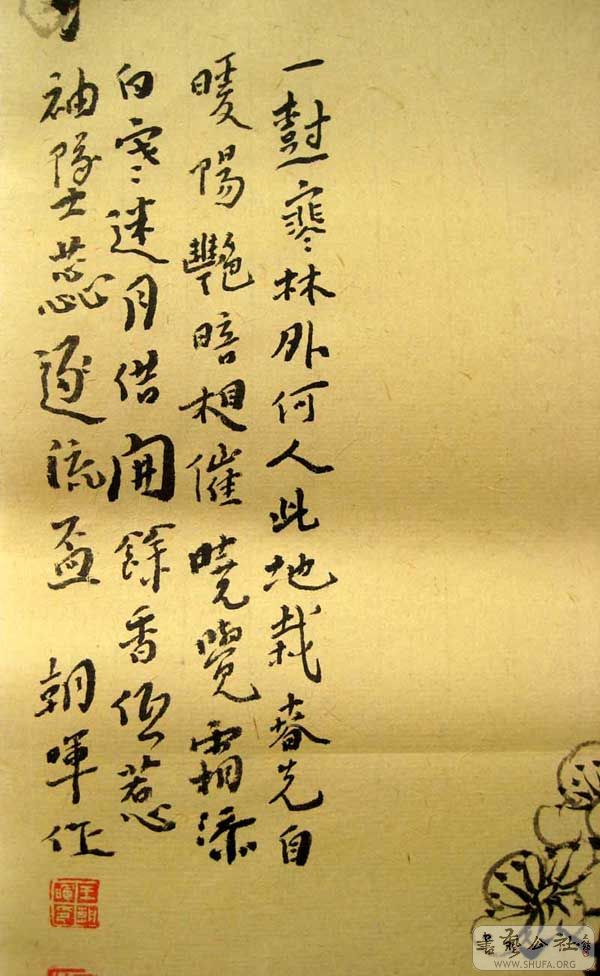 一樹寒林外何人此地栽春先自
暖陽艷暗相催曉覺霜添
白寒迷月借開餘香低惹
袖墜蕊逐流盃 朝暉作
王朝暉印
書藝公社
WWW.SHUFA.ORG